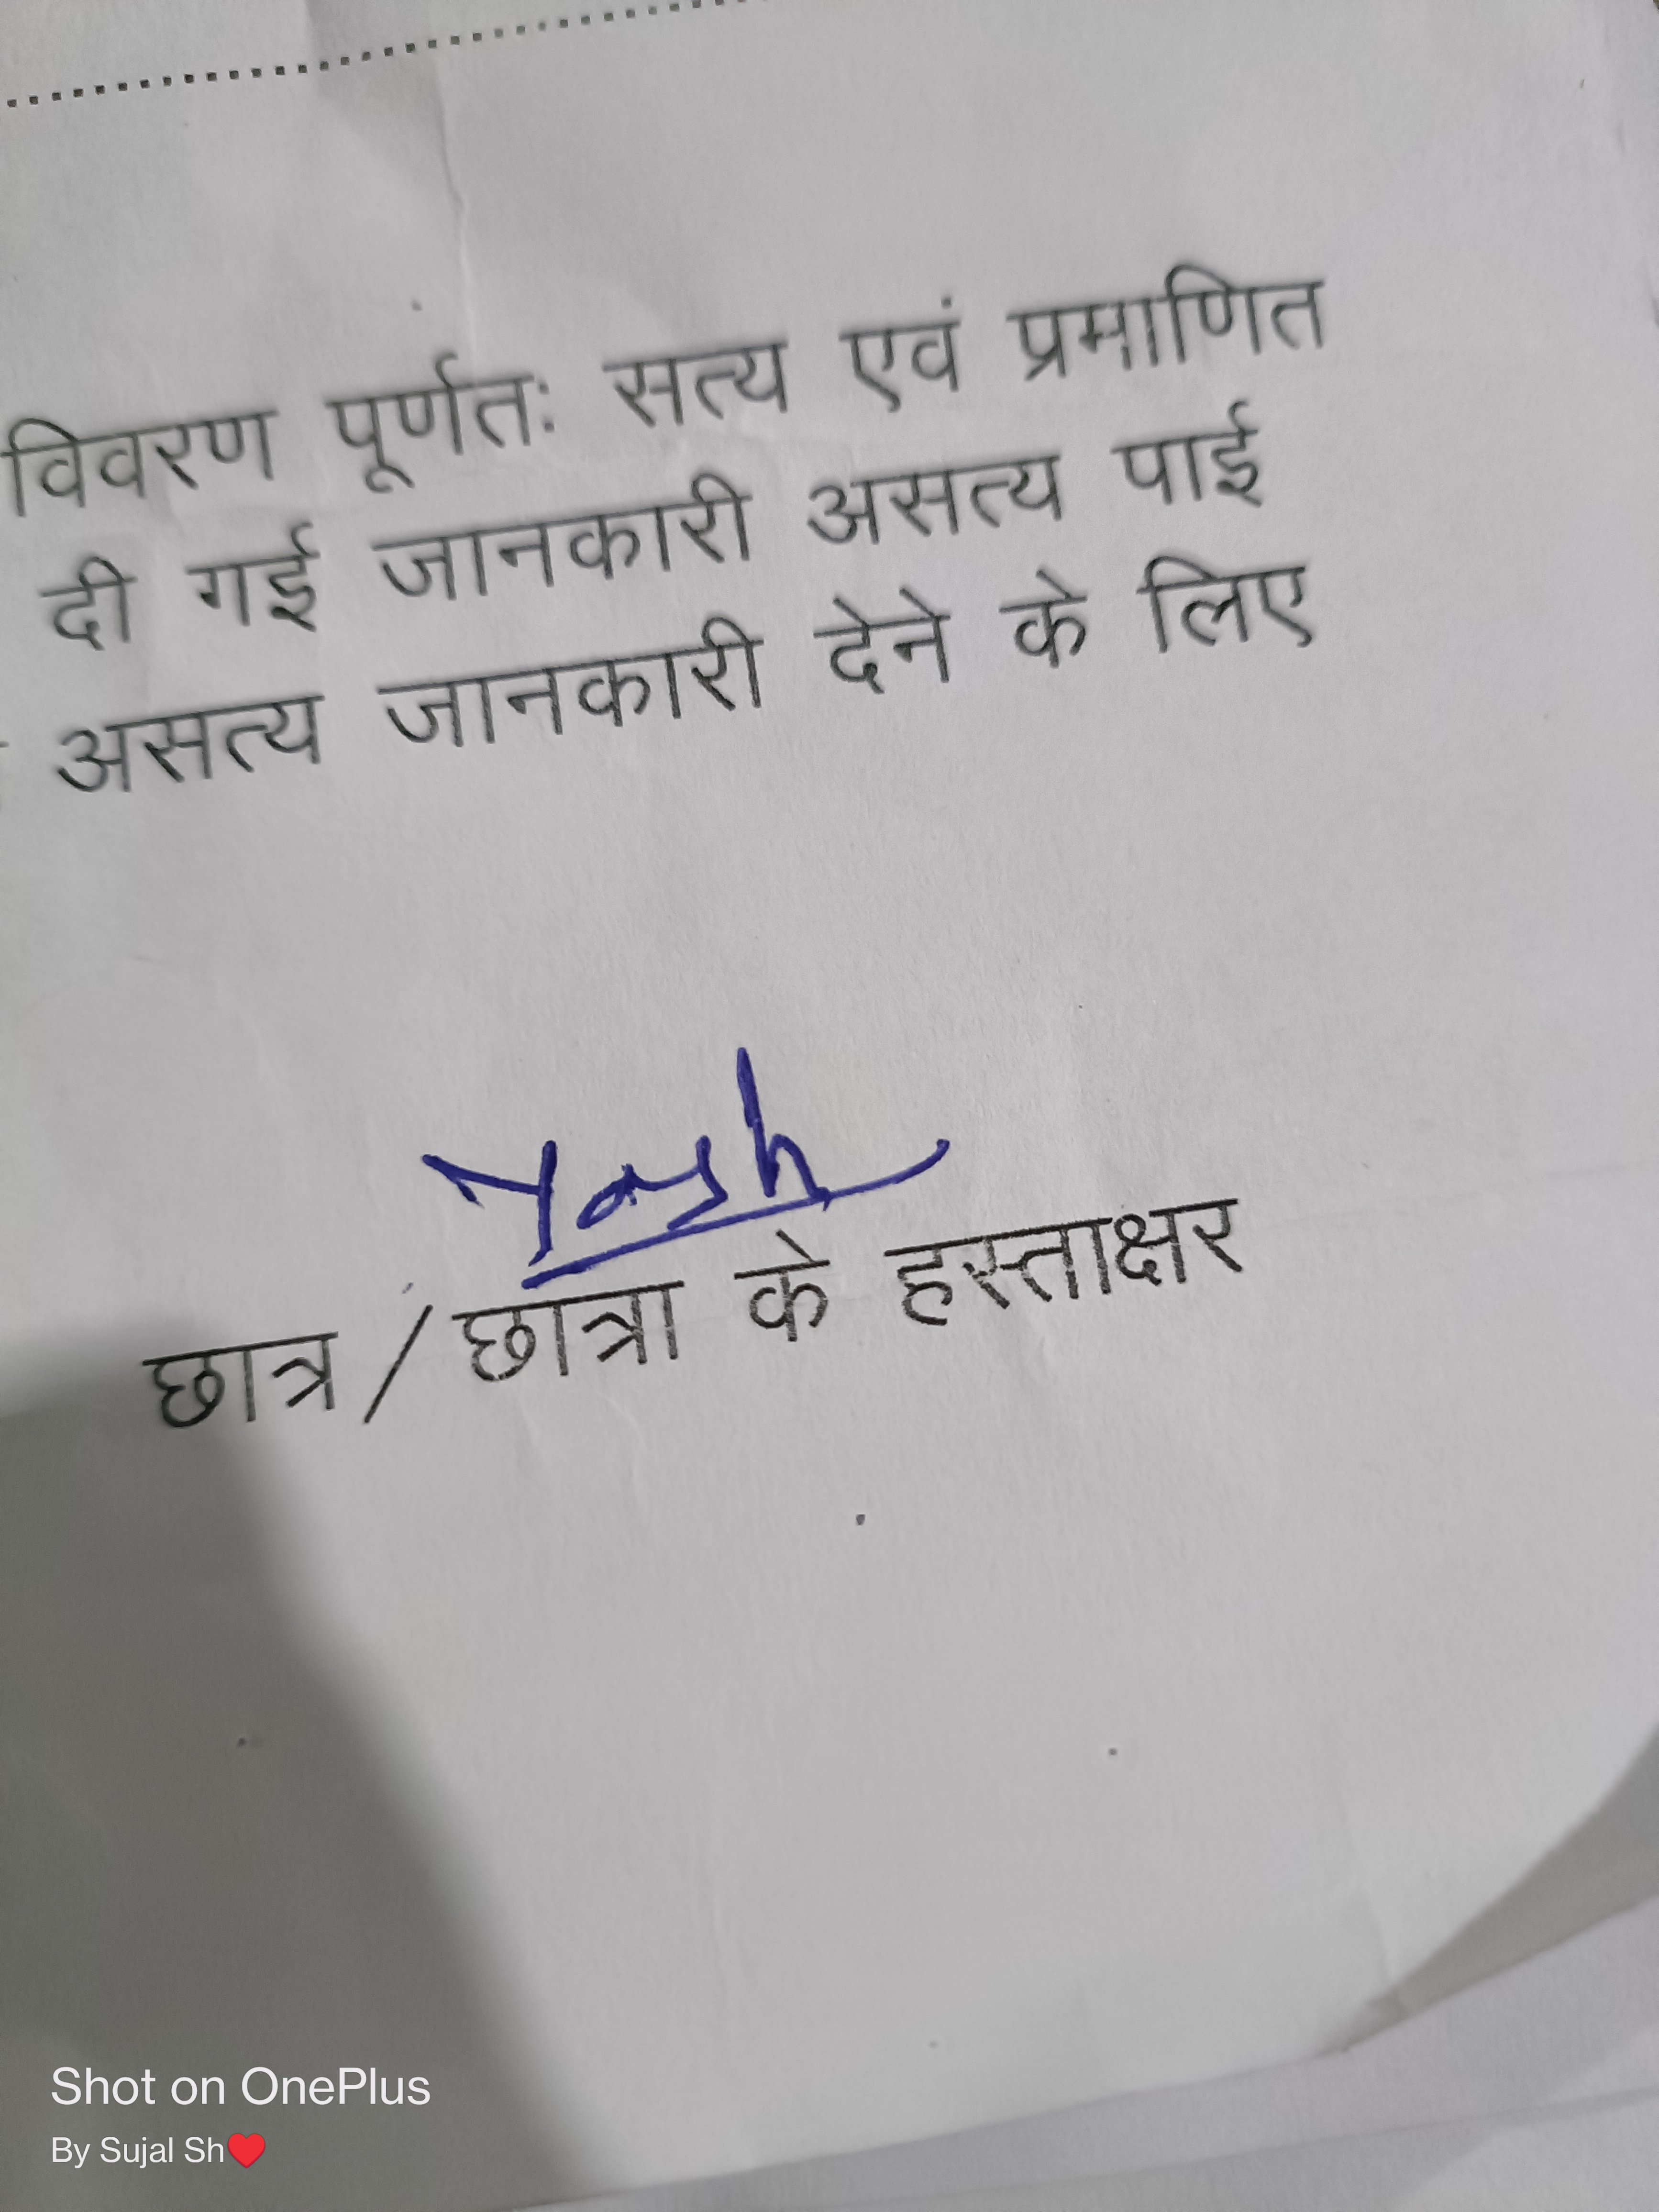 विवरण पूर्णतः सत्य एवं प्रमाणित
दी गई जानकारी असत्य पाई
असत्य जानकारी देने के लिए
Yash
छात्र / छात्रा के हस्ताक्षर
Shot on OnePlus
By Sujal Sh❤️